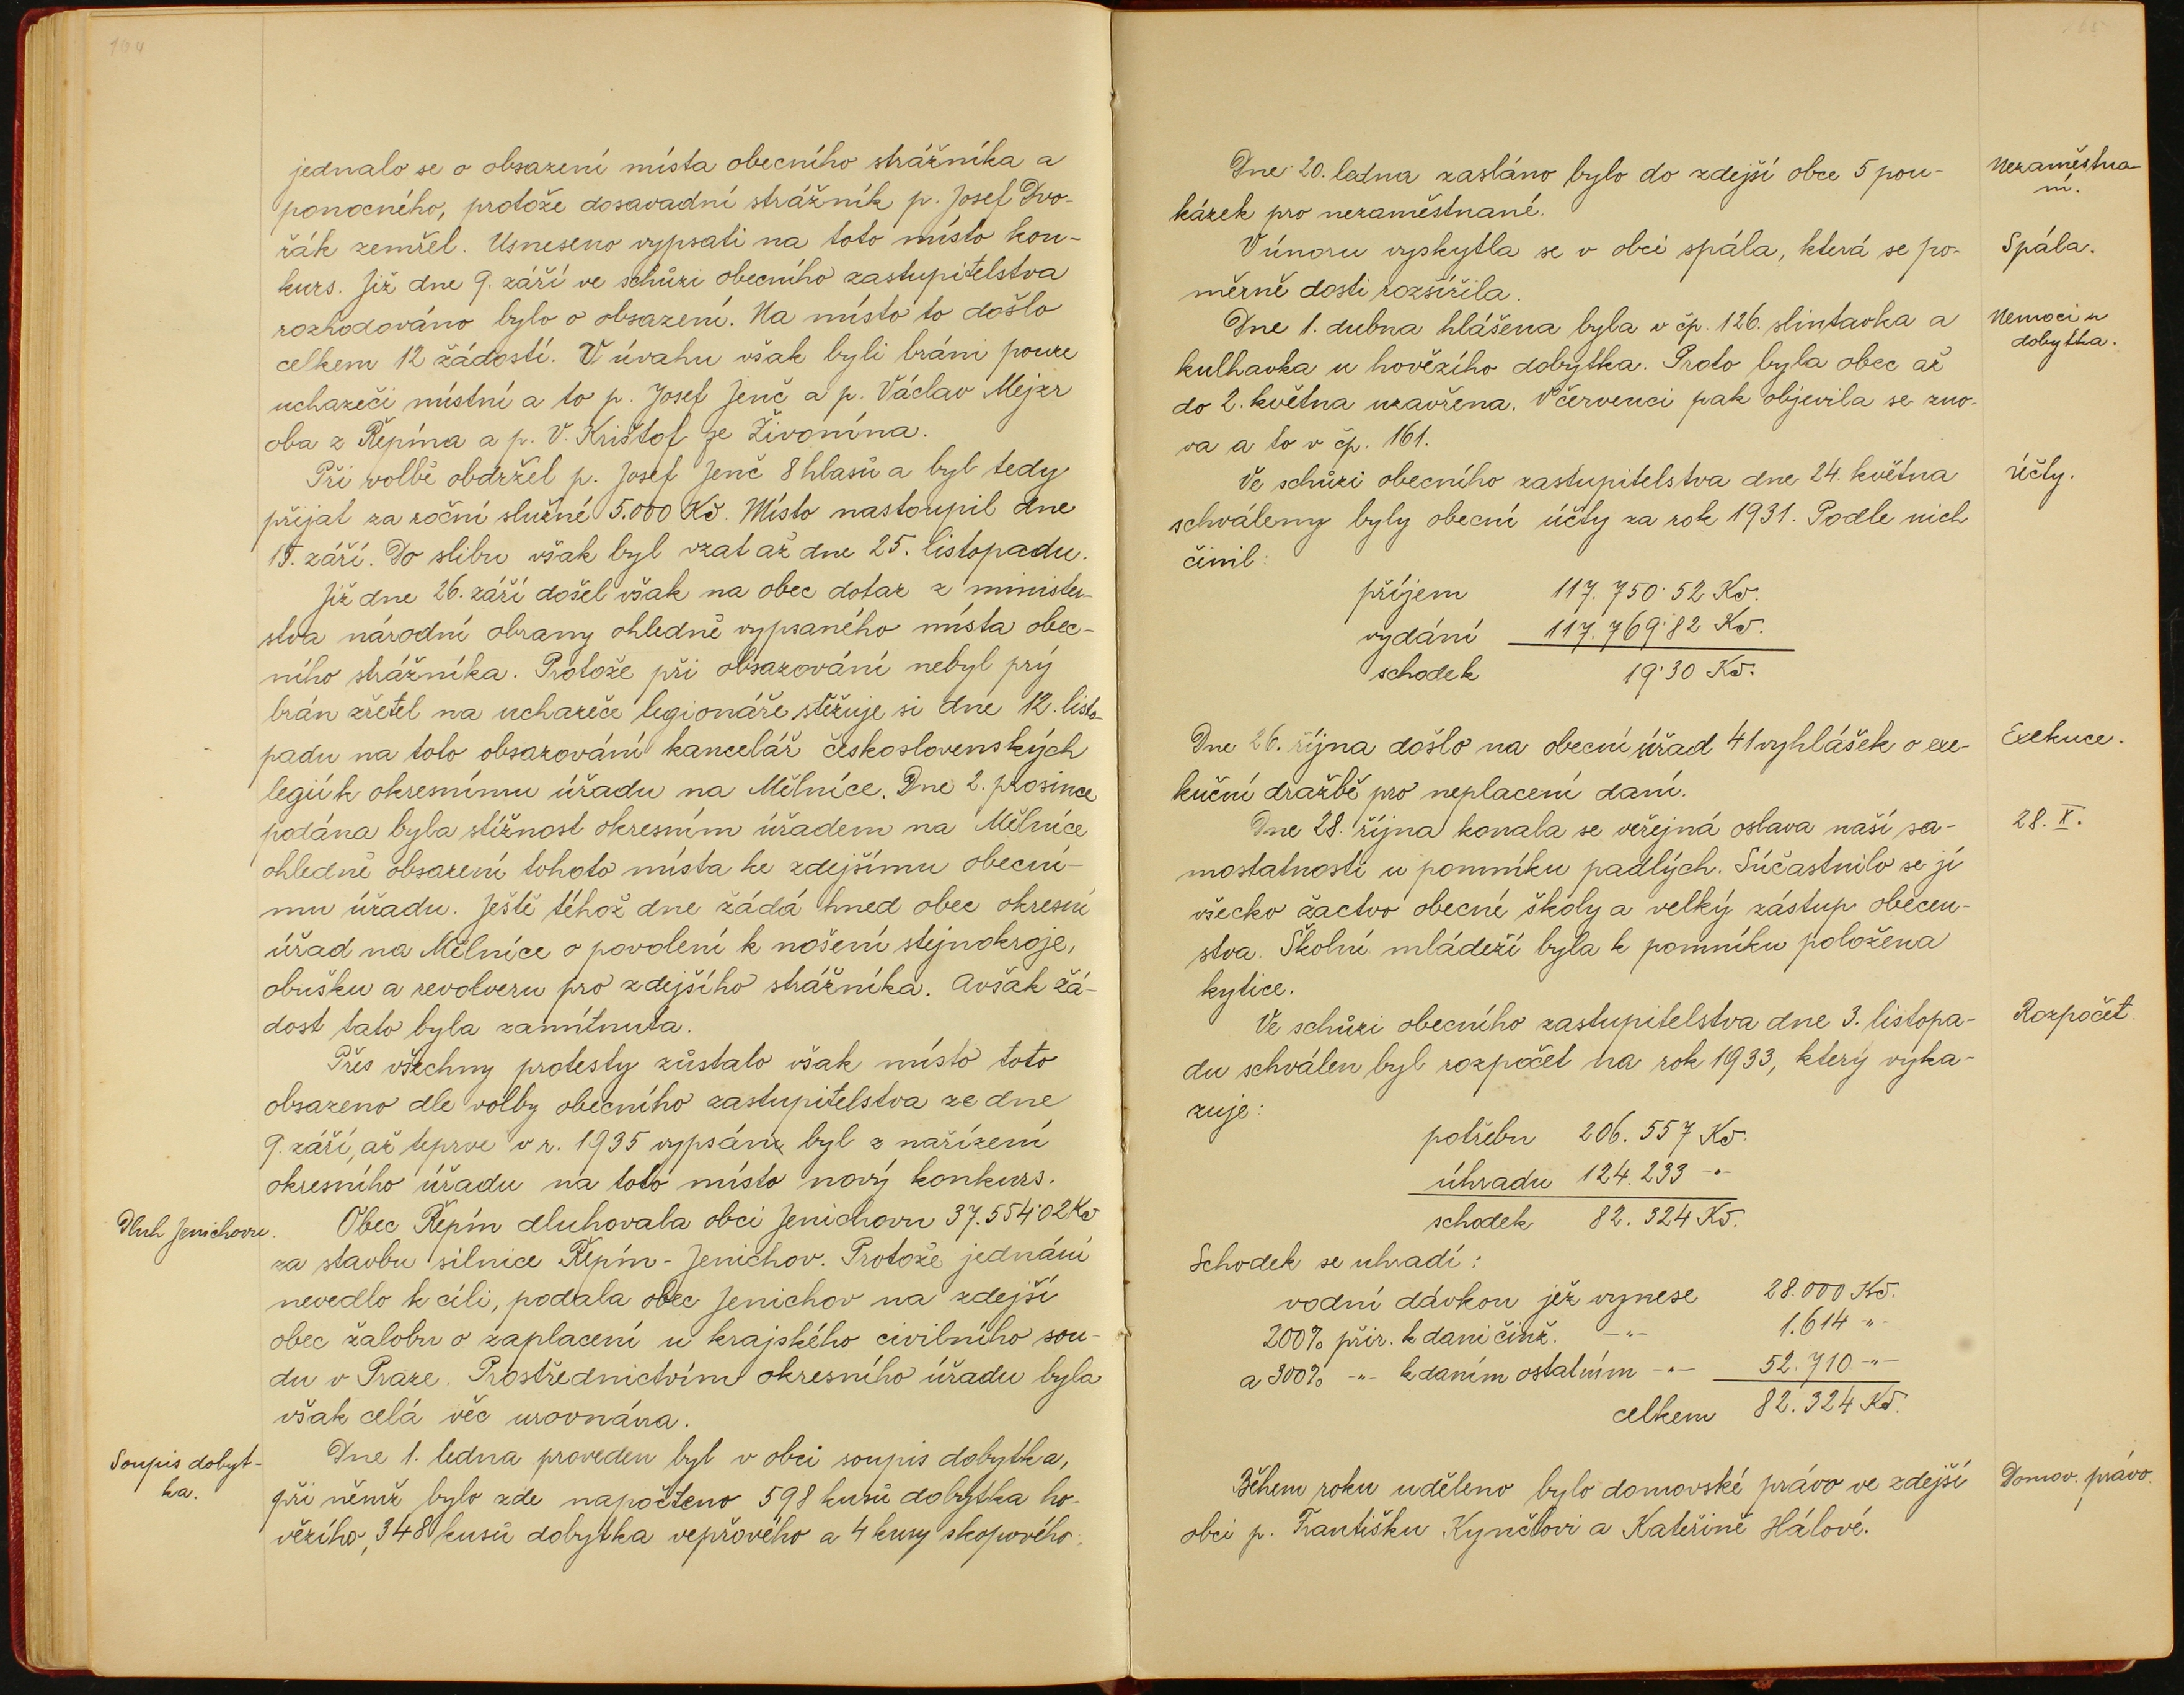 164
jednalo se o obsazení místa obecního strážníka a
ponocného, protože dosavadní strážník p. Josef Dvo-
řák zemřel. Usneseno vypsati na toto místo kon-
kurs. Již dne 9. září ve schůzi obecního zastupitelstva
rozhodováno bylo o obsazení. Na místo to došlo
celkem 12 žádostí. V úvahu však byli bráni pouze
uchazeči místní a to p. Josef Jenč a p. Václav Mejzr
oba z Řepína a p. V. Krištof ze Živonína.
Při volbě obdržel p. Josef Jenč 8 hlasů a byl tedy
přijat za roční služné 5.000 Kč. Místo nastoupil dne
15. září. Do slibu však byl vzat až dne 25. listopadu.
Již dne 26. září došel však na obec dotaz z minister-
stva národní obrany ohledně vypsaného místa obec-
ního strážníka. Protože při obsazování nebyl prý
brán zřetel na uchazeče legionáře stěžuje si dne 12. listo-
padu na toto obsazování kancelář československých
legií k okresnímu úřadu na Mělníce. Dne 2. prosince
podána byla stížnost okresním úřadem na Mělníce
ohledně obsazení tohoto místa ke zdejšímu obecní-
mu úřadu. Ještě téhož dne žádá hned obec okresní
úřad na Mělníce o povolení k nošení stejnokroje,
obušku a revolveru pro zdejšího strážníka. Avšak žá-
dost tato byla zamítnuta.
Přes všechny protesty zůstalo však místo toto
obsazeno dle volby obecního zastupitelstva ze dne
9. září, až teprve v r. 1935 vypsán byl z nařízení
okresního úřadu na toto místo nový konkurs.
Dluh Jenichovu.
Obec Řepín dluhovala obci Jenichovu 37.554·02 Kč
za stavbu silnice Řepín - Jenichov. Protože jednání
nevedlo k cíli, podala obec Jenichov na zdejší
obec žalobu o zaplacení u krajského civilního sou-
du v Praze. Prostřednictvím okresního úřadu byla
však celá věc urovnána.
Soupis dobyt-
ka.
Dne 1. ledna proveden byl v obci soupis dobytka,
při němž bylo zde napočteno 598 kusů dobytka ho-
vězího, 348 kusů dobytka vepřového a 4 kusy skopového.
165
Dne 20. ledna zasláno bylo do zdejší obce 5 pou-
kázek pro nezaměstnané.
Nezaměstna-
ní.
V únoru vyskytla se v obci spála, která se po-
měrně dosti rozšířila.
Spála.
Dne 1. dubna hlášena byla v čp. 126. slintavka a
kulhavka u hovězího dobytka. Proto byla obec až
do 2. května uzavřena. V červenci pak objevila se zno-
va a to v čp. 161.
Nemoci u
dobytka.
Ve schůzi obecního zastupitelstva dne 24. května
schváleny byly obecní účty za rok 1931. Podle nich
činil:
Účty.
příjem 117.750·52 Kč.
vydání 117.769·82 Kč.
schodek 19·30 Kč.
Dne 26. října došlo na obecní úřad 41 vyhlášek o exe-
kuční dražbě pro neplacení daní.
Exekuce.
Dne 28. října konala se veřejná oslava naší sa-
mostatnosti u pomníku padlých. Súčastnilo se jí
všecko žactvo obecné školy a velký zástup obecen-
stva. Školní mládeží byla k pomníku položena
kytice.
28. X.
Ve schůzi obecního zastupitelstva dne 3. listopa-
du schválen byl rozpočet na rok 1933, který vyka-
zuje:
Rozpočet.
potřebu 206.557 Kč.
úhradu 124.233 -"-
schodek 82.324 Kč.
Schodek se uhradí:
vodní dávkou jež vynese 28.000 Kč.
200% přir. k dani činž. -"- 1.614 -"-
a 300% -"- k daním ostatním -"- 52.710 -"-
celkem 82.324 Kč.
Během roku uděleno bylo domovské právo ve zdejší
obci p. Františku Kynčlovi a Kateřině Hálové.
Domov. právo.